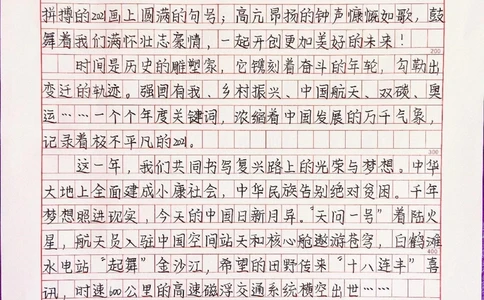 拼搏的2021画上圆满的句号；高亢昂扬的钟声慷慨如歌，鼓
舞着我们满怀壮志豪情，一起开创更加美好的未来！
200
时间是历史的雕塑家，它镌刻着奋斗的年轮，勾勒出
变迁的轨迹。强国有我、乡村振兴、中国航天、双碳、奥
运……一个个年度关键词，浓缩着中国发展的万千气象，
记录着极不平凡的2021。
300
这一年，我们共同书写复兴路上的光荣与梦想。中华
大地上全面建成小康社会，中华民族告别绝对贫困。千年
梦想照进现实，今天的中国日新月异。“天问一号”着陆火
星，航天员入驻中国空间站天和核心舱遨游苍穹，白鹤滩
400
水电站“起舞”金沙江，希望的田野传来“十八连丰”喜
讯，时速600公里的高速磁浮交通系统横空出世……